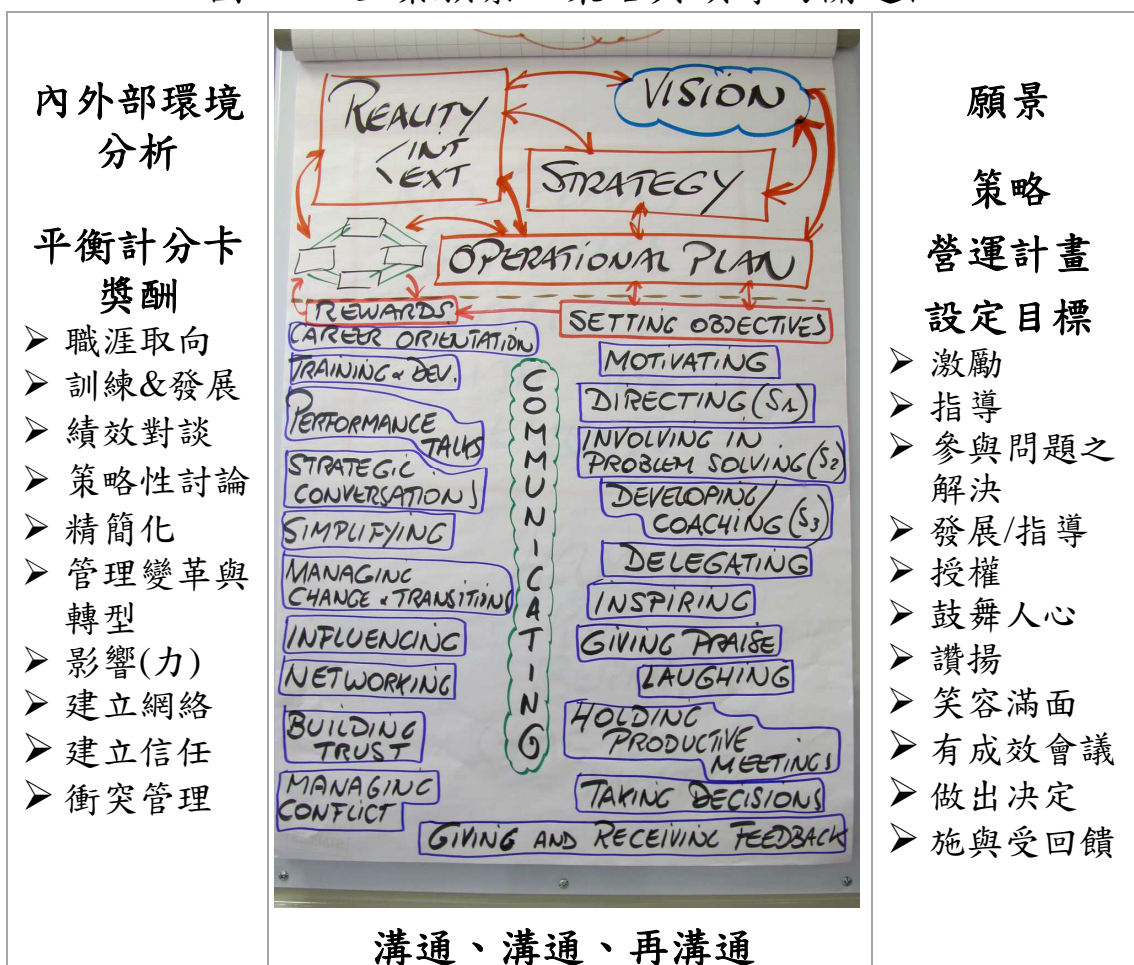 內外部環境
分析
平衡計分卡
獎酬
➢ 職涯取向
➢ 訓練&發展
➢ 績效對談
➢ 策略性討論
➢ 精簡化
➢ 管理變革與
轉型
➢ 影響(力)
➢ 建立網絡
➢ 建立信任
➢ 衝突管理
REALITY
INT
EXT
VISION
STRATEGY
OPERATIONAL PLAN
REWARDS
SETTING OBJECTIVES
CAREER ORIENTATION
TRAINING & DEV.
PERFORMANCE
TALKS
STRATEGIC
CONVERSATIONS
SIMPLIFYING
MANAGING
CHANGE & TRANSITIONS
INFLUENCING
NETWORKING
BUILDING
TRUST
MANAGING
CONFLICT
COMMUNICATING
MOTIVATING
DIRECTING (S1)
INVOLVING IN
PROBLEM SOLVING (S2)
DEVELOPING/
COACHING (S3)
DELEGATING
INSPIRING
GIVING PRAISE
LAUGHING
HOLDING
PRODUCTIVE
MEETINGS
TAKING DECISIONS
GIVING AND RECEIVING FEEDBACK
願景
策略
營運計畫
設定目標
➢ 激勵
➢ 指導
➢ 參與問題之
解決
➢ 發展/指導
➢ 授權
➢ 鼓舞人心
➢ 讚揚
➢ 笑容滿面
➢ 有成效會議
➢ 做出決定
➢ 施與受回饋
溝通、溝通、再溝通